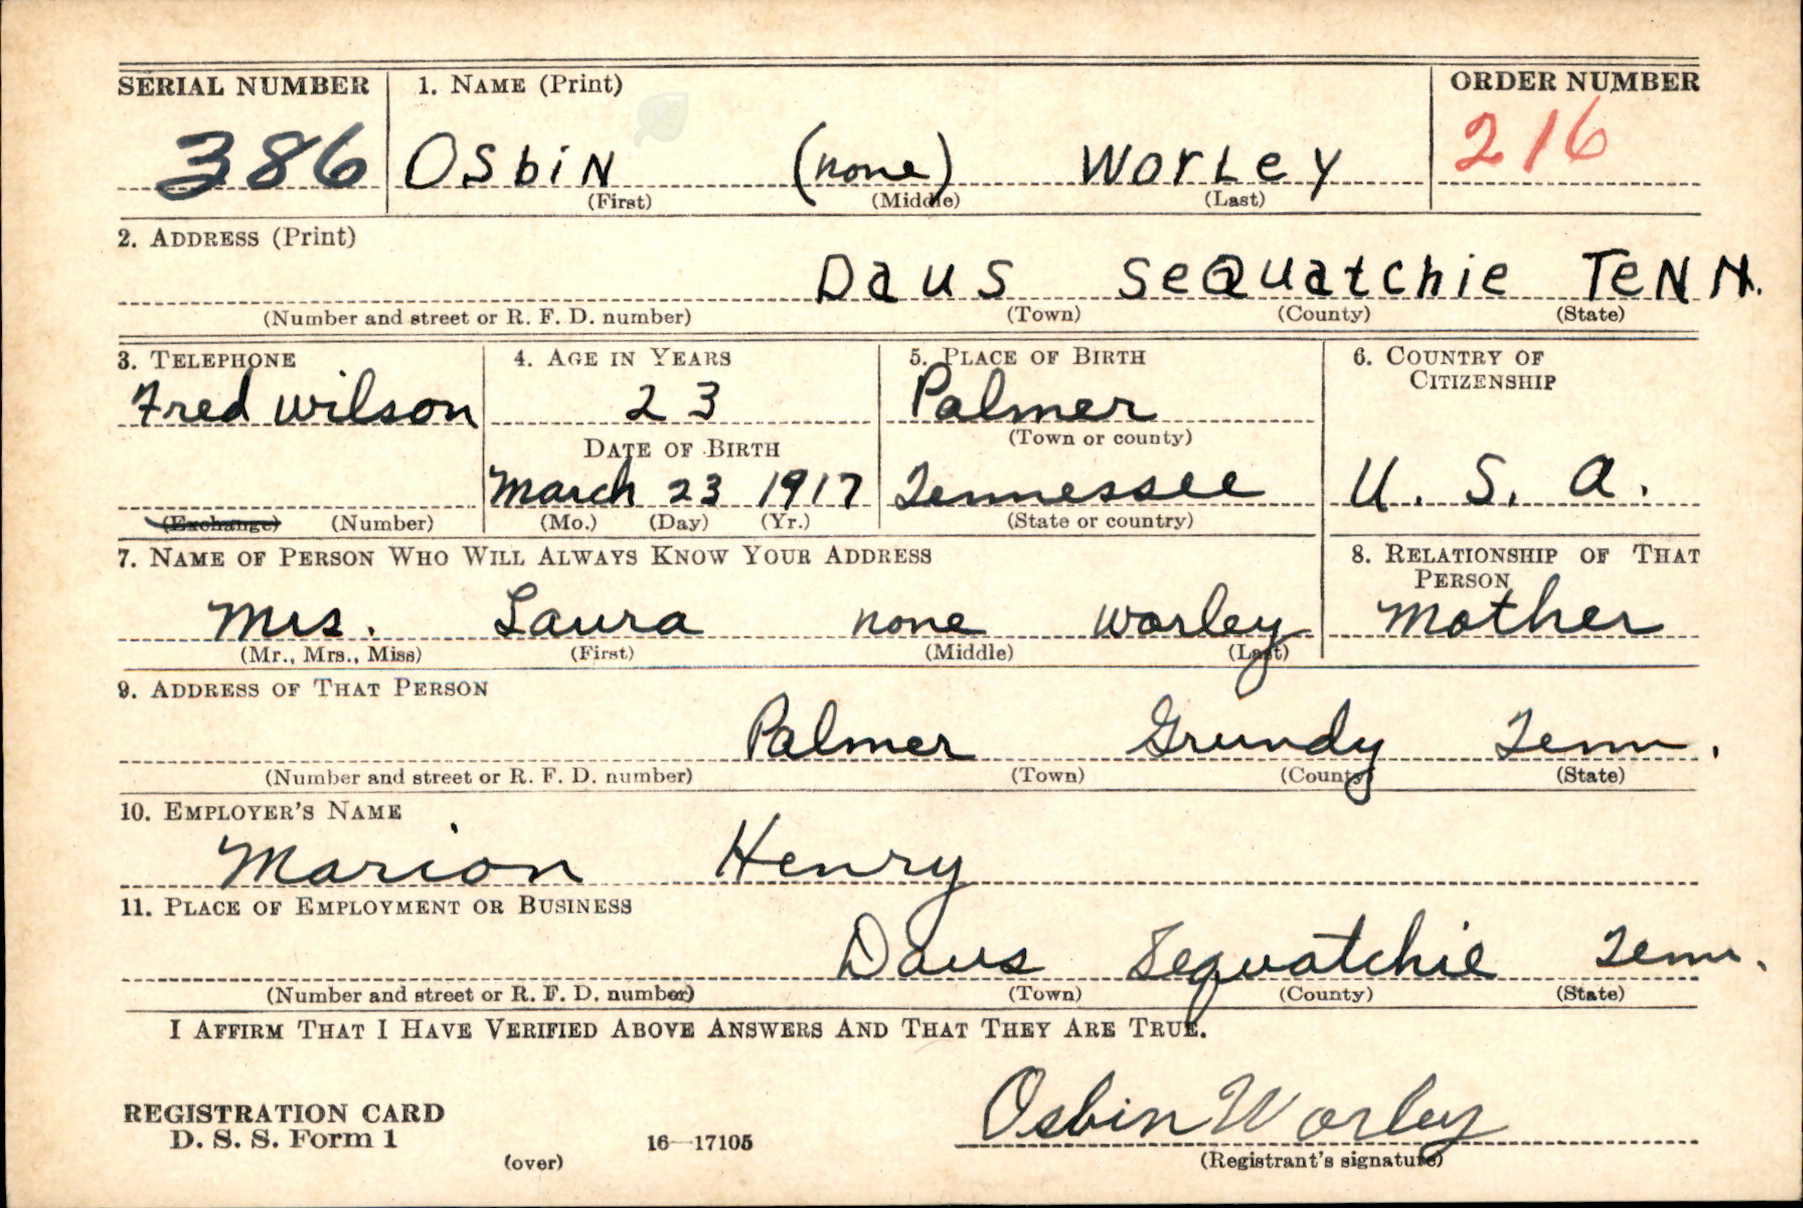 SERIAL NUMBER 1. NAME (Print) ORDER NUMBER
386 Osbin (none) Worley 216
(First) (Middle) (Last)
2. ADDRESS (Print)
Daus Sequatchie Tenn.
(Number and street or R. F. D. number) (Town) (County) (State)
3. TELEPHONE 4. AGE IN YEARS 5. PLACE OF BIRTH 6. COUNTRY OF CITIZENSHIP
Fred Wilson 23 Palmer
(Town or county)
DATE OF BIRTH
March 23 1917 Tennessee U. S. A.
(Exchange) (Number) (Mo.) (Day) (Yr.) (State or country)
7. NAME OF PERSON WHO WILL ALWAYS KNOW YOUR ADDRESS 8. RELATIONSHIP OF THAT PERSON
Mrs. Laura none Worley Mother
(Mr., Mrs., Miss) (First) (Middle) (Last)
9. ADDRESS OF THAT PERSON
Palmer Grundy Tenn.
(Number and street or R. F. D. number) (Town) (County) (State)
10. EMPLOYER'S NAME
Marion Henry
11. PLACE OF EMPLOYMENT OR BUSINESS
Daus Sequatchie Tenn.
(Number and street or R. F. D. number) (Town) (County) (State)
I AFFIRM THAT I HAVE VERIFIED ABOVE ANSWERS AND THAT THEY ARE TRUE.
Osbin Worley
REGISTRATION CARD
D. S. S. Form 1 16—17105
(over) (Registrant's signature)